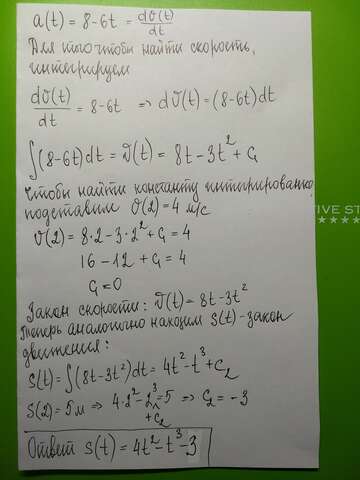 a(t) = 8-6t = dϑ(t)/dt
Для того чтобы найти скорость,
интегрируем
dϑ(t)/dt = 8-6t ⇒ dϑ(t) = (8-6t)dt
∫(8-6t)dt = ϑ(t) = 8t - 3t² + C₁
Чтобы найти константу интегрирования,
подставим ϑ(2) = 4 м/с
ϑ(2) = 8·2 - 3·2² + C₁ = 4
16 - 12 + C₁ = 4
C₁ = 0
Закон скорости: ϑ(t) = 8t - 3t²
Теперь аналогично находим S(t) - закон
движения:
S(t) = ∫(8t - 3t²)dt = 4t² - t³ + C₂
S(2) = 5м ⇒ 4·2² - 2³ + C₂ = 5 ⇒ C₂ = -3
Ответ S(t) = 4t² - t³ - 3